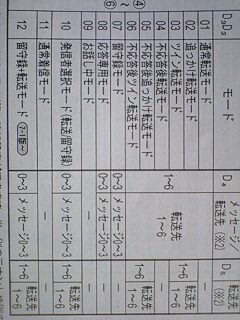 D₂D₃ モード D₄ メッセージ/転送先 (※2) D₅ 転送先 (※2)
01 通常転送モード
02 追っかけ転送モード
03 ツイン転送モード 1~6 転送先 1~6
04 不応答後転送モード 1~6 転送先 1~6
05 不応答後追っかけ転送モード
06 不応答後ツイン転送モード 1~6 転送先 1~6
07 留守録モード 0~3 メッセージ0~3 —
08 応答専用モード 0~3 メッセージ0~3 —
09 お話し中モード — —
10 発信者選択モード (転送/留守録) 0~3 メッセージ0~3 1~6 転送先 1~6
11 通常着信モード — —
12 留守録+転送モード 0~3 メッセージ0~3 1~6 転送先 1~6
④ ~ ⑥